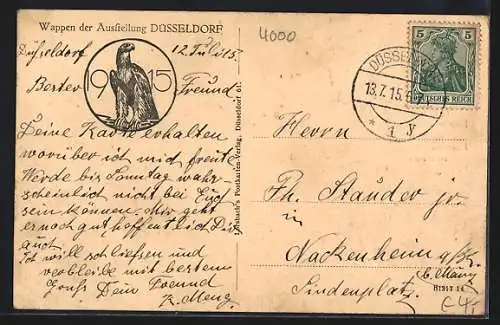 Wappen der Ausstellung DÜSSELDORF
4000
Düsseldorf 12 Juli 15.
1915
Bester Freund
Deine Karte erhalten
worüber ich mich freut
Werde bis Sonntag wahr-
scheinlich nicht bei Euch
sein können. Mir geht
er noch gut, hoffentlich Dir
auch
Ich will schließen und
verbleibe mit bestem
Gruß Dein Freund
K. Meng.
Postkarten-Verlag, Düsseldorf 61.
5 5
DEUTSCHES REICH
DÜSSEL
13.7.15.
* 1 y
Herrn
Ph. Stauder jr.
in
Nackenheim a/Rh.
b. Mainz
Lindenplatz